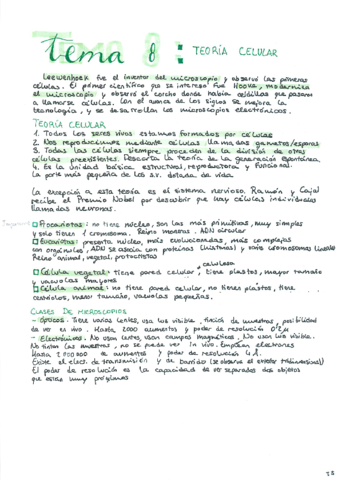 Tema 8: TEORÍA CELULAR
Leewenhoek fue el inventor del microscopio y observó las primeras
células. El primer científico que se interesó fue HOOKE, modernizó
el microscopio y observó el corcho donde había celdillas que pasaron
a llamarse células. Con el avance de los siglos se mejora la
tecnología, y se desarrollan los microscopios electrónicos.
TEORÍA CELULAR
1. Todos los seres vivos estamos formados por células
2. Nos reproducimos mediante células llamadas gametos/esporas
3. Todas las células siempre proceden de la división de otras
células preexistentes. Descarta la teoría de la generación espontánea.
4. Es la unidad básica estructural, reproductora y funcional.
La parte más pequeña de los s.v. dotada de vida
La excepción a esta teoría es el sistema nervioso. Ramón y Cajal
recibe el Premio Nobel por descubrir que hay células individuales
llamadas neuronas.
Procariotas: no tiene núcleo, son las más primitivas, muy simples
y solo tienen 1 cromosoma. Reino moneras. ADN circular
Eucariotas: presenta núcleo, más evolucionadas, más complejas
con orgánulos, ADN se asocia con proteínas (histonas) y varios cromosomas lineales
Reino animal, vegetal, protoctistas
celulosa
Célula vegetal: tiene pared celular, tiene plastos, mayor tamaño
y vacuolas mayores
Célula animal: no tiene pared celular, no tienen plastos, tiene
centriolos, menor tamaño, vacuolas pequeñas.
CLASES DE MICROSCOPIOS
- Ópticos. Tiene varias lentes, usa luz visible, tinción de muestras, posibilidad
de ver en vivo. Hasta 2000 aumentos y poder de resolución 0'2 μ
- Electrónicos. No usan lentes, usan campos magnéticos, No usan luz visible.
No tintan las muestras, no se puede ver in vivo. Emplean electrones
Hasta de aumentos y poder de resolución
Existe el elect. de transmisión y de barrido (se observa el exterior tridimensional)
El poder de resolución es la capacidad de ver separados dos objetos
que están muy próximos